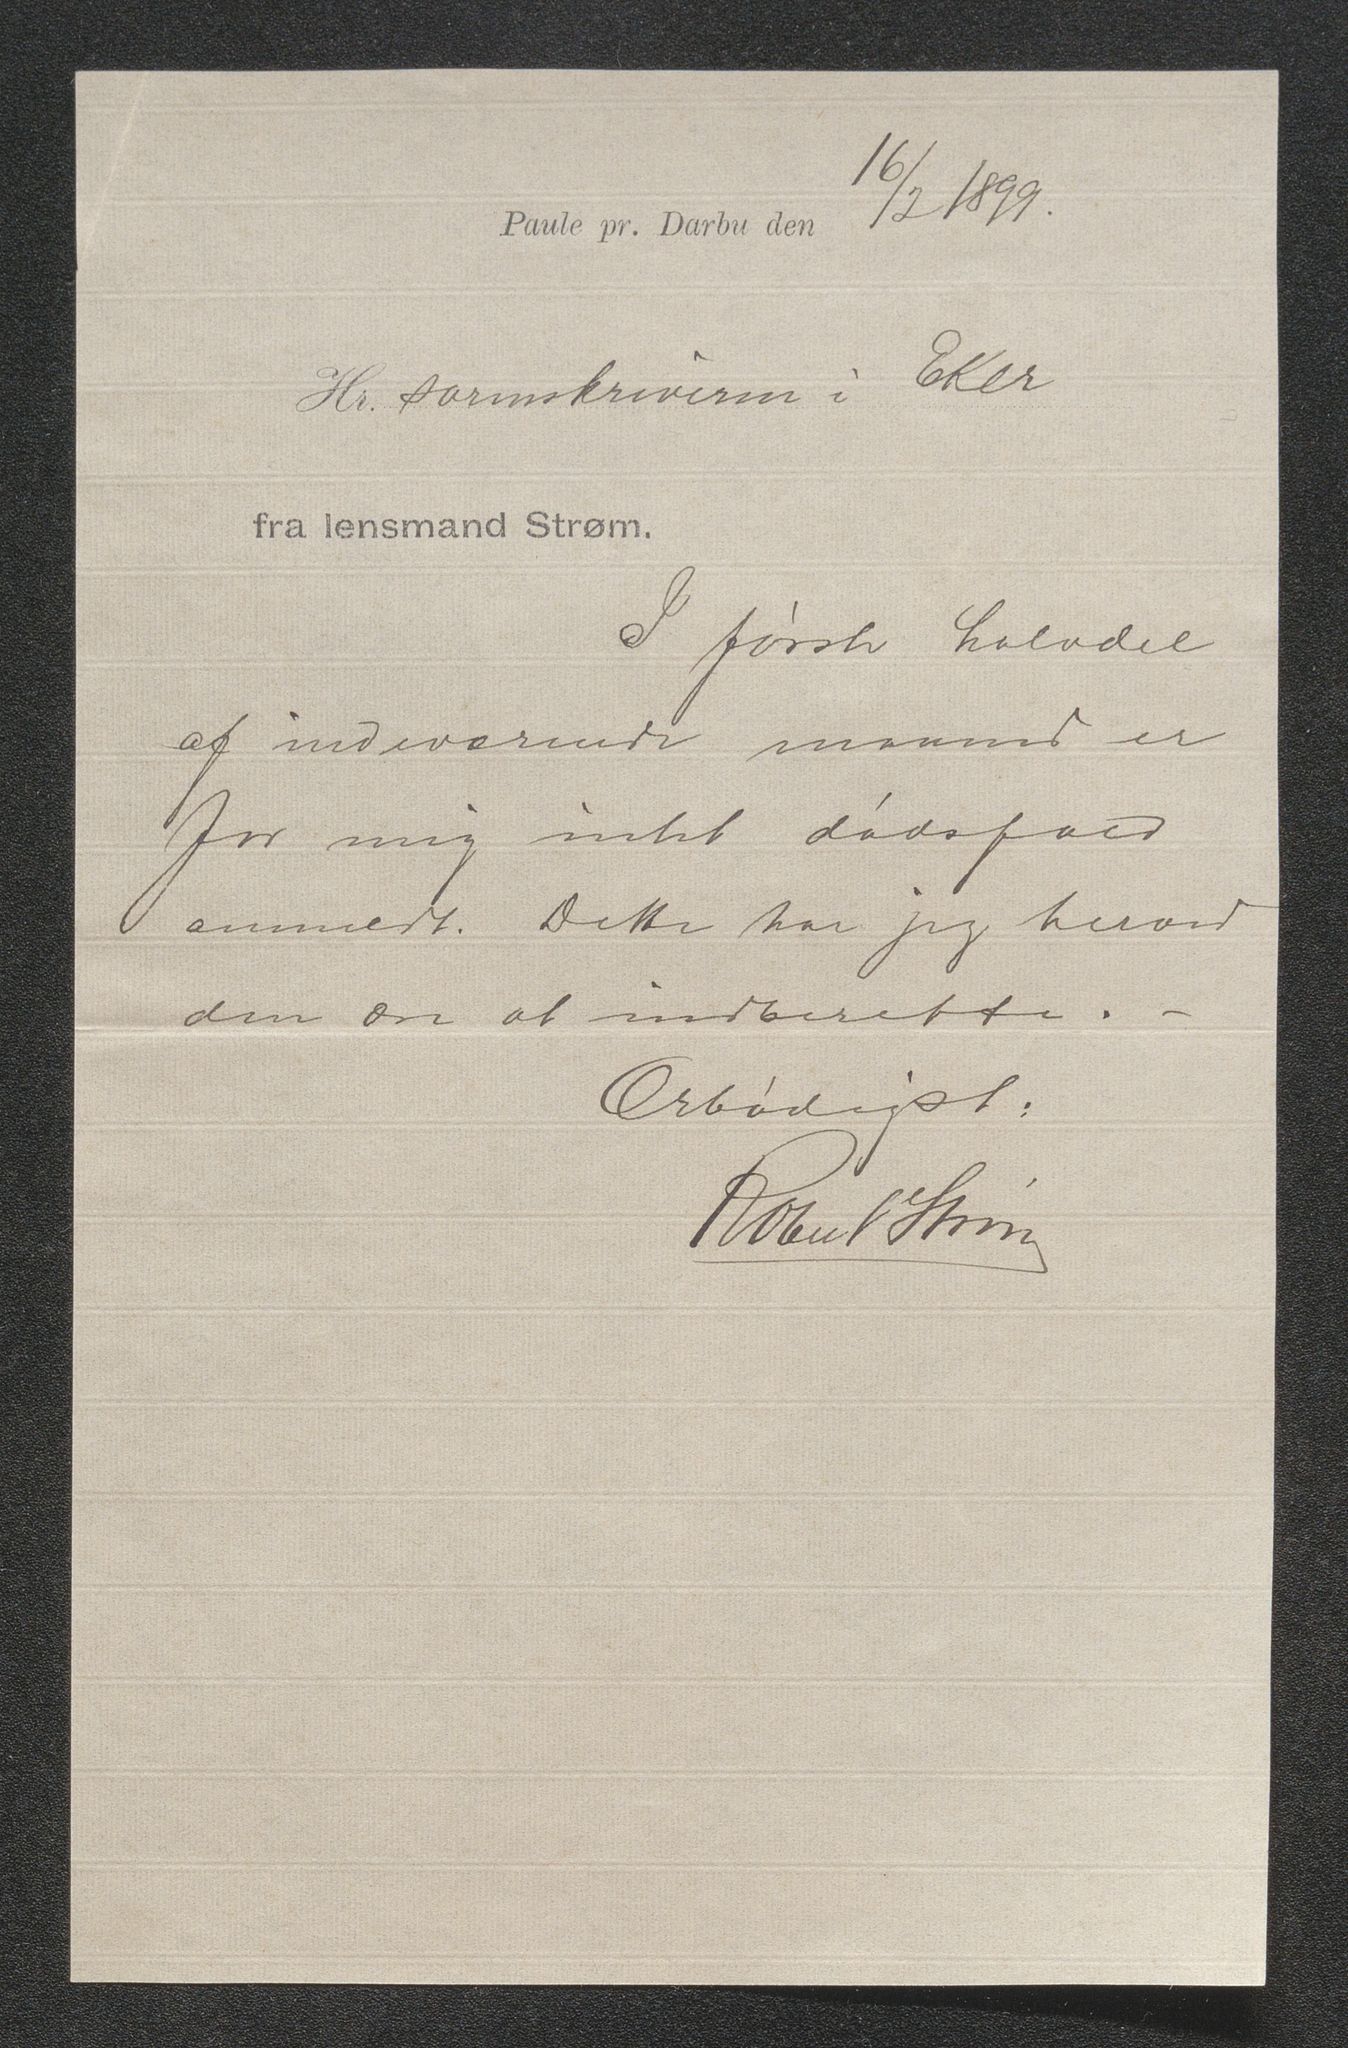 Paule pr. Darbu den 16/2 1899.
Hr. sorenskriveren i Eker
fra lensmand Strøm.
I første halvdel
af indeværende maaned er
for mig intet dødsfald
anmeldt. Dette har jeg herved
den ære at indberette. –
Ærbødigst:
Robert Strøm